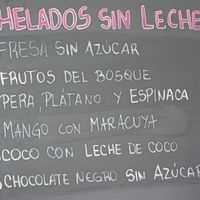 HELADOS SIN LECHE
FRESA SIN AZÚCAR
FRUTOS DEL BOSQUE
PERA, PLÁTANO Y ESPINACA
MANGO CON MARACUYA
COCO CON LECHE DE COCO
CHOCOLATE NEGRO SIN AZÚCAR